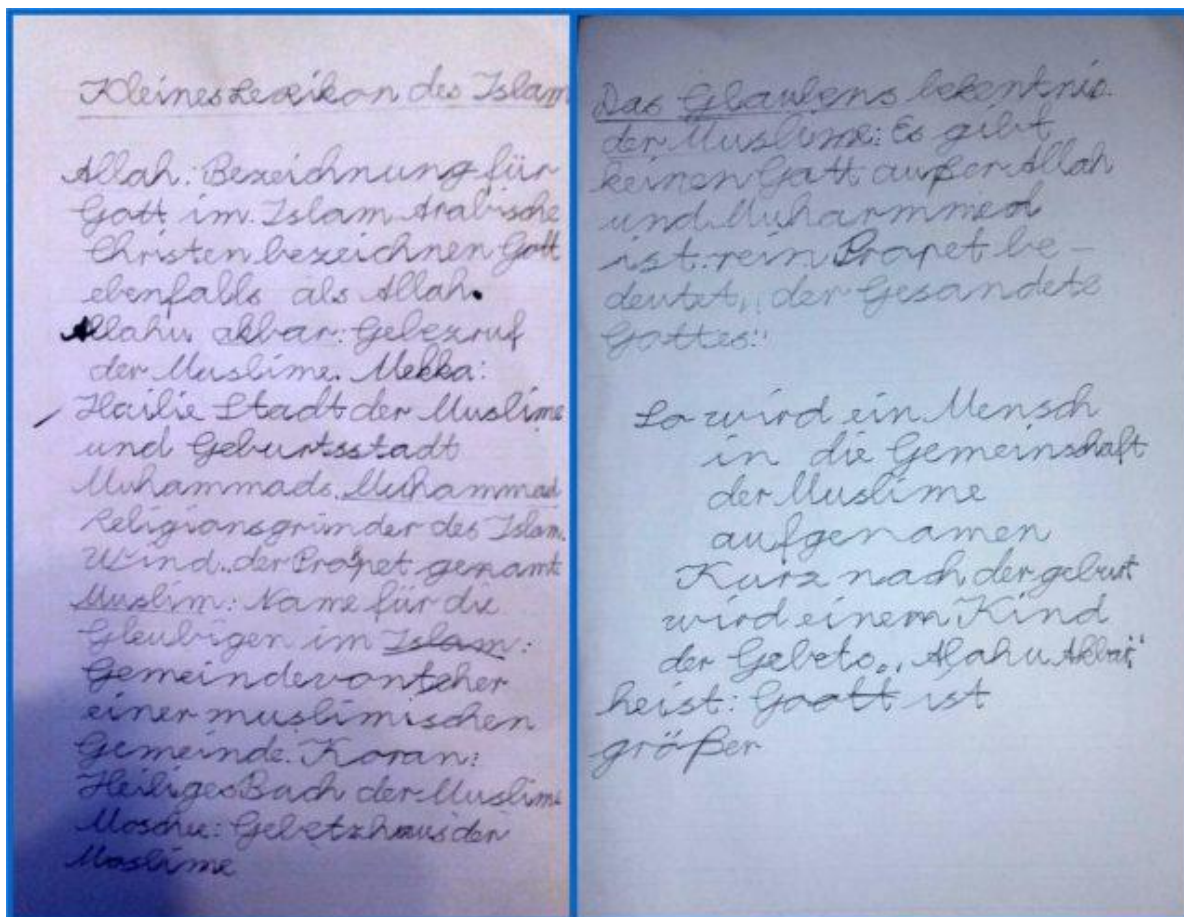 Kleines Lexikon des Islam
Allah: Bezeichnung für
Gott im Islam Arabische
Christen bezeichnen Gott
ebenfalls als Allah.
Allahu akbar: Gebezruf
der Muslime. Mekka:
Hailie Stadt der Muslime
und Geburtsstadt
Muhammads. Muhammad
Religionsgründer des Islam.
Wind „der Propet" genamt
Muslim: Name für die
Gleubigen im Islam:
Gemeindevonteher
einer muslimischen
Gemeinde. Koran:
Heiliges Bach der Muslime
Moschu: Gebetzhaus der
Moslime
Das Glaubens bekentnis
der Muslime: Es gibt
keinen Gatt außer Allah
und Muharmmed
ist rein Prapet be-
deutet, „der Gesandete
Gottes:"
So wird ein Mensch
in die Gemeinschaft
der Muslime
aufgenamen
Kurz nach der geburt
wird einem Kind
der Gebets „Alahu Akbar"
heist: Goott ist
größer